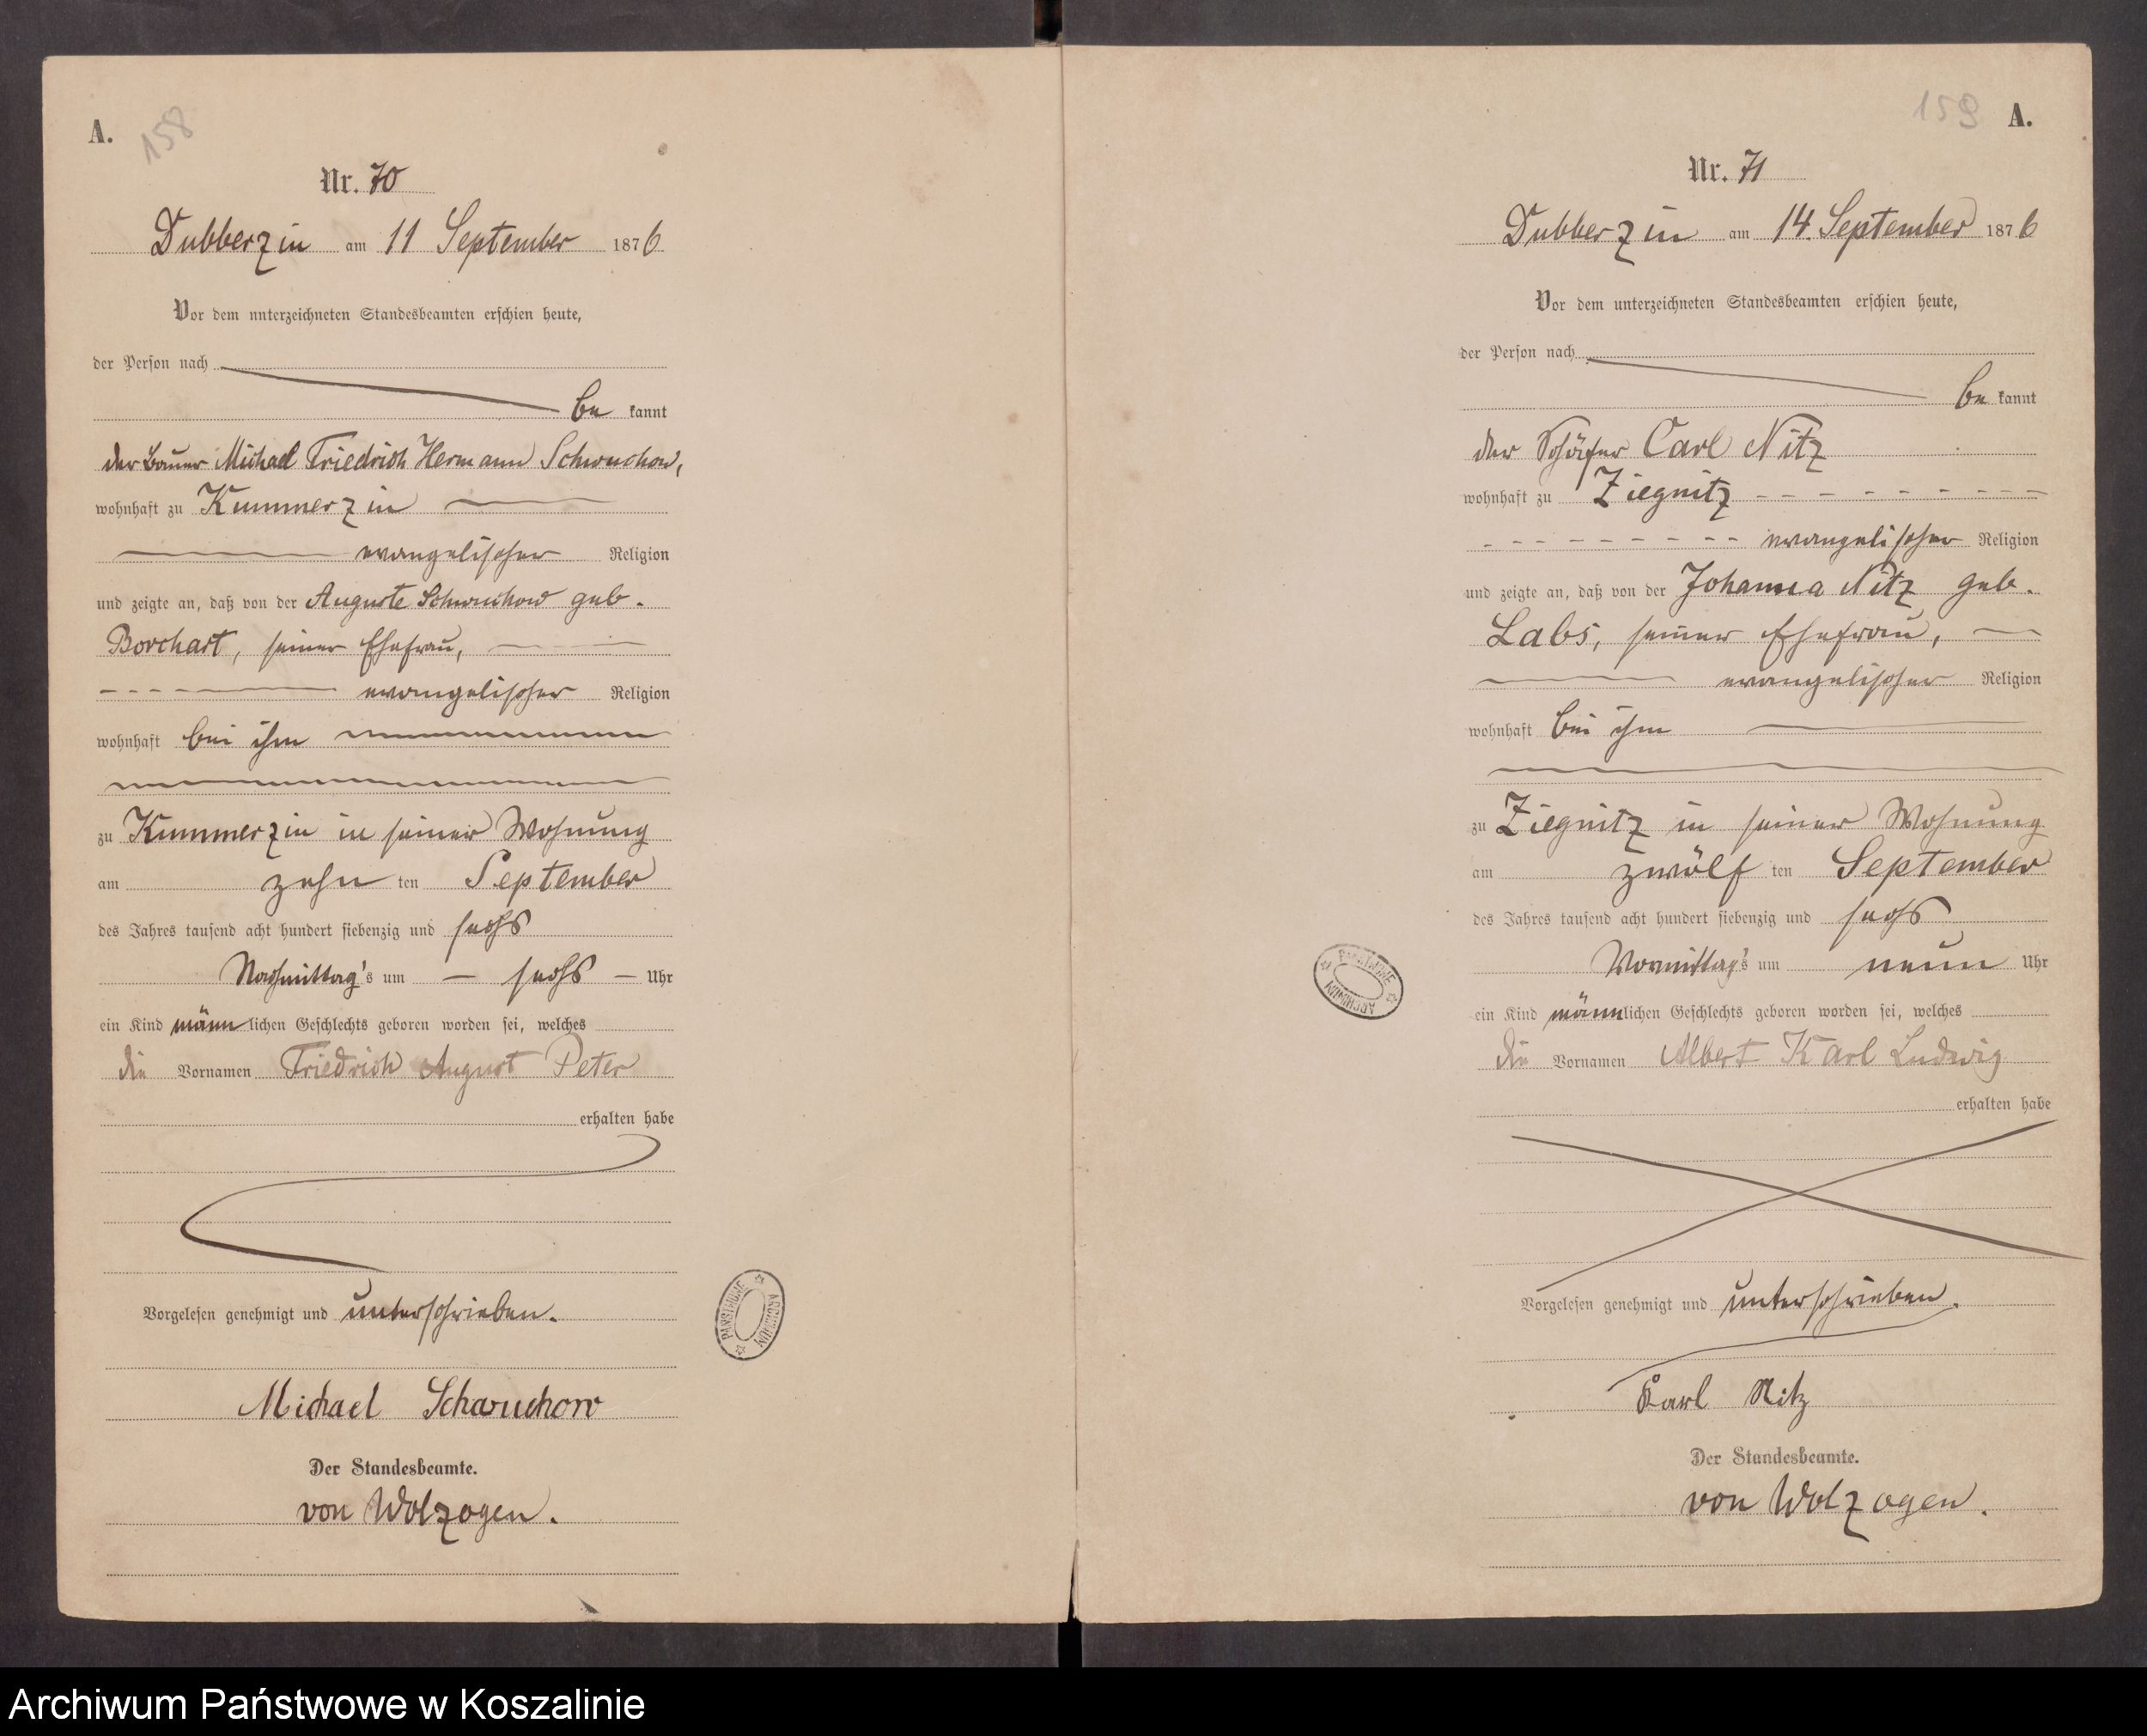 A.
158
Nr. 70
Dubberzin am 11 September 1876
Vor dem unterzeichneten Standesbeamten erschien heute,
der Person nach
be kannt
der Bauer Michael Friedrich Hermann Schwuchow,
wohnhaft zu Kummerzin
evangelischer Religion
und zeigte an, daß von der Auguste Schwuchow geb.
Borchart, seiner Ehefrau,
evangelischer Religion
wohnhaft bei ihm
zu Kummerzin in seiner Wohnung
am zehn ten September
des Jahres tausend acht hundert siebenzig und sechs
Nachmittag's um sechs Uhr
ein Kind männlichen Geschlechts geboren worden sei, welches
die Vornamen Friedrich August Peter
erhalten habe
Vorgelesen genehmigt und unterschrieben.
Michael Schwuchow
Der Standesbeamte.
von Wolzogen.
ARCHIWUM PAŃSTWOWE
159
A.
Nr. 71
Dubberzin am 14. September 1876
Vor dem unterzeichneten Standesbeamten erschien heute,
der Person nach
be kannt
der Schäfer Carl Nitz
wohnhaft zu Ziegnitz
evangelischer Religion
und zeigte an, daß von der Johanna Nitz geb.
Labs, seiner Ehefrau,
evangelischer Religion
wohnhaft bei ihm
zu Ziegnitz in seiner Wohnung
am zwölf ten September
des Jahres tausend acht hundert siebenzig und sechs
Vormittag's um neun Uhr
ein Kind männlichen Geschlechts geboren worden sei, welches
die Vornamen Albert Karl Ludwig
erhalten habe
Vorgelesen genehmigt und unterschrieben.
Karl Nitz
Der Standesbeamte.
von Wolzogen.
ARCHIWUM PAŃSTWOWE
Archiwum Państwowe w Koszalinie